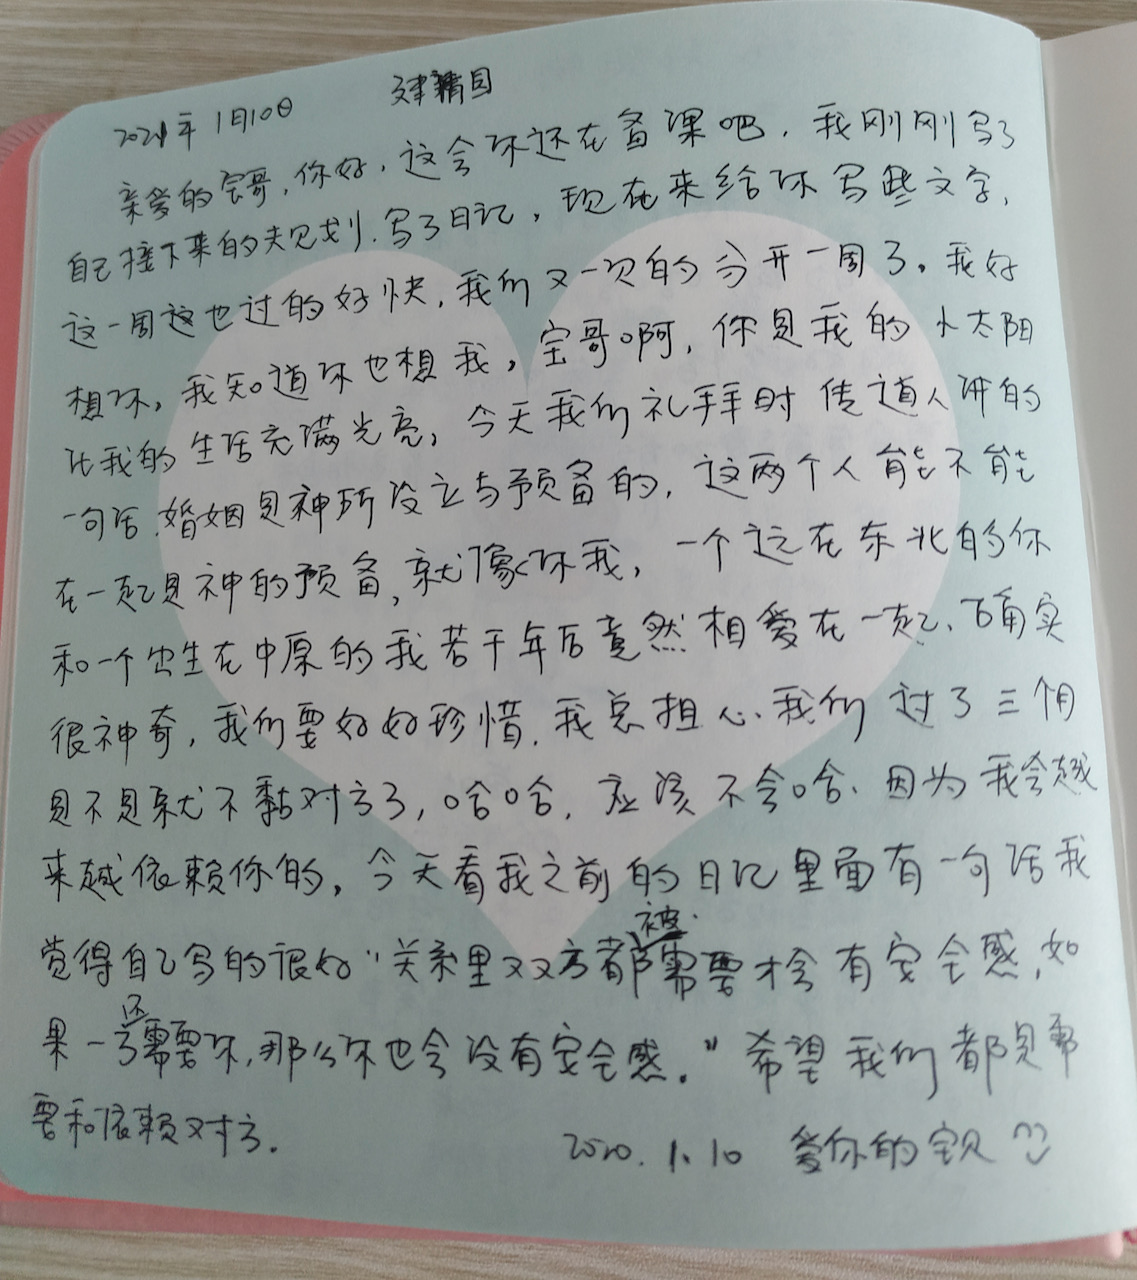 2021年1月10日
亲爱的宝哥,你好,这会你还在备课吧,我刚刚写了
自己接下来的规划.写了日记,现在来给你写些文字,
这一周这也过的好快,我们又一次的分开一周了。我好
想你,我知道你也想我,宝哥啊,你是我的小太阳
让我的生活充满光亮,今天我们礼拜时传道人讲的
一句话.婚姻是神所设立与预备的,这两个人能不能
在一起是神的预备,就像你我,一个远在东北的你
和一个出生在中原的我若干年后竟然相爱在一起、确实
很神奇,我们要好好珍惜.我总担心、我们过了三个月
是不是就不黏对方了,哈哈,应该不会哈、因为我会越
来越依赖你的,今天看我之前的日记里面有一句话我
觉得自己写的很好“关系里双方都被需要才会有安全感,如
果一方还需要你,那么你也会没有安全感。”希望我们都是需
要和依赖对方.
2020.1.10 爱你的宝贝